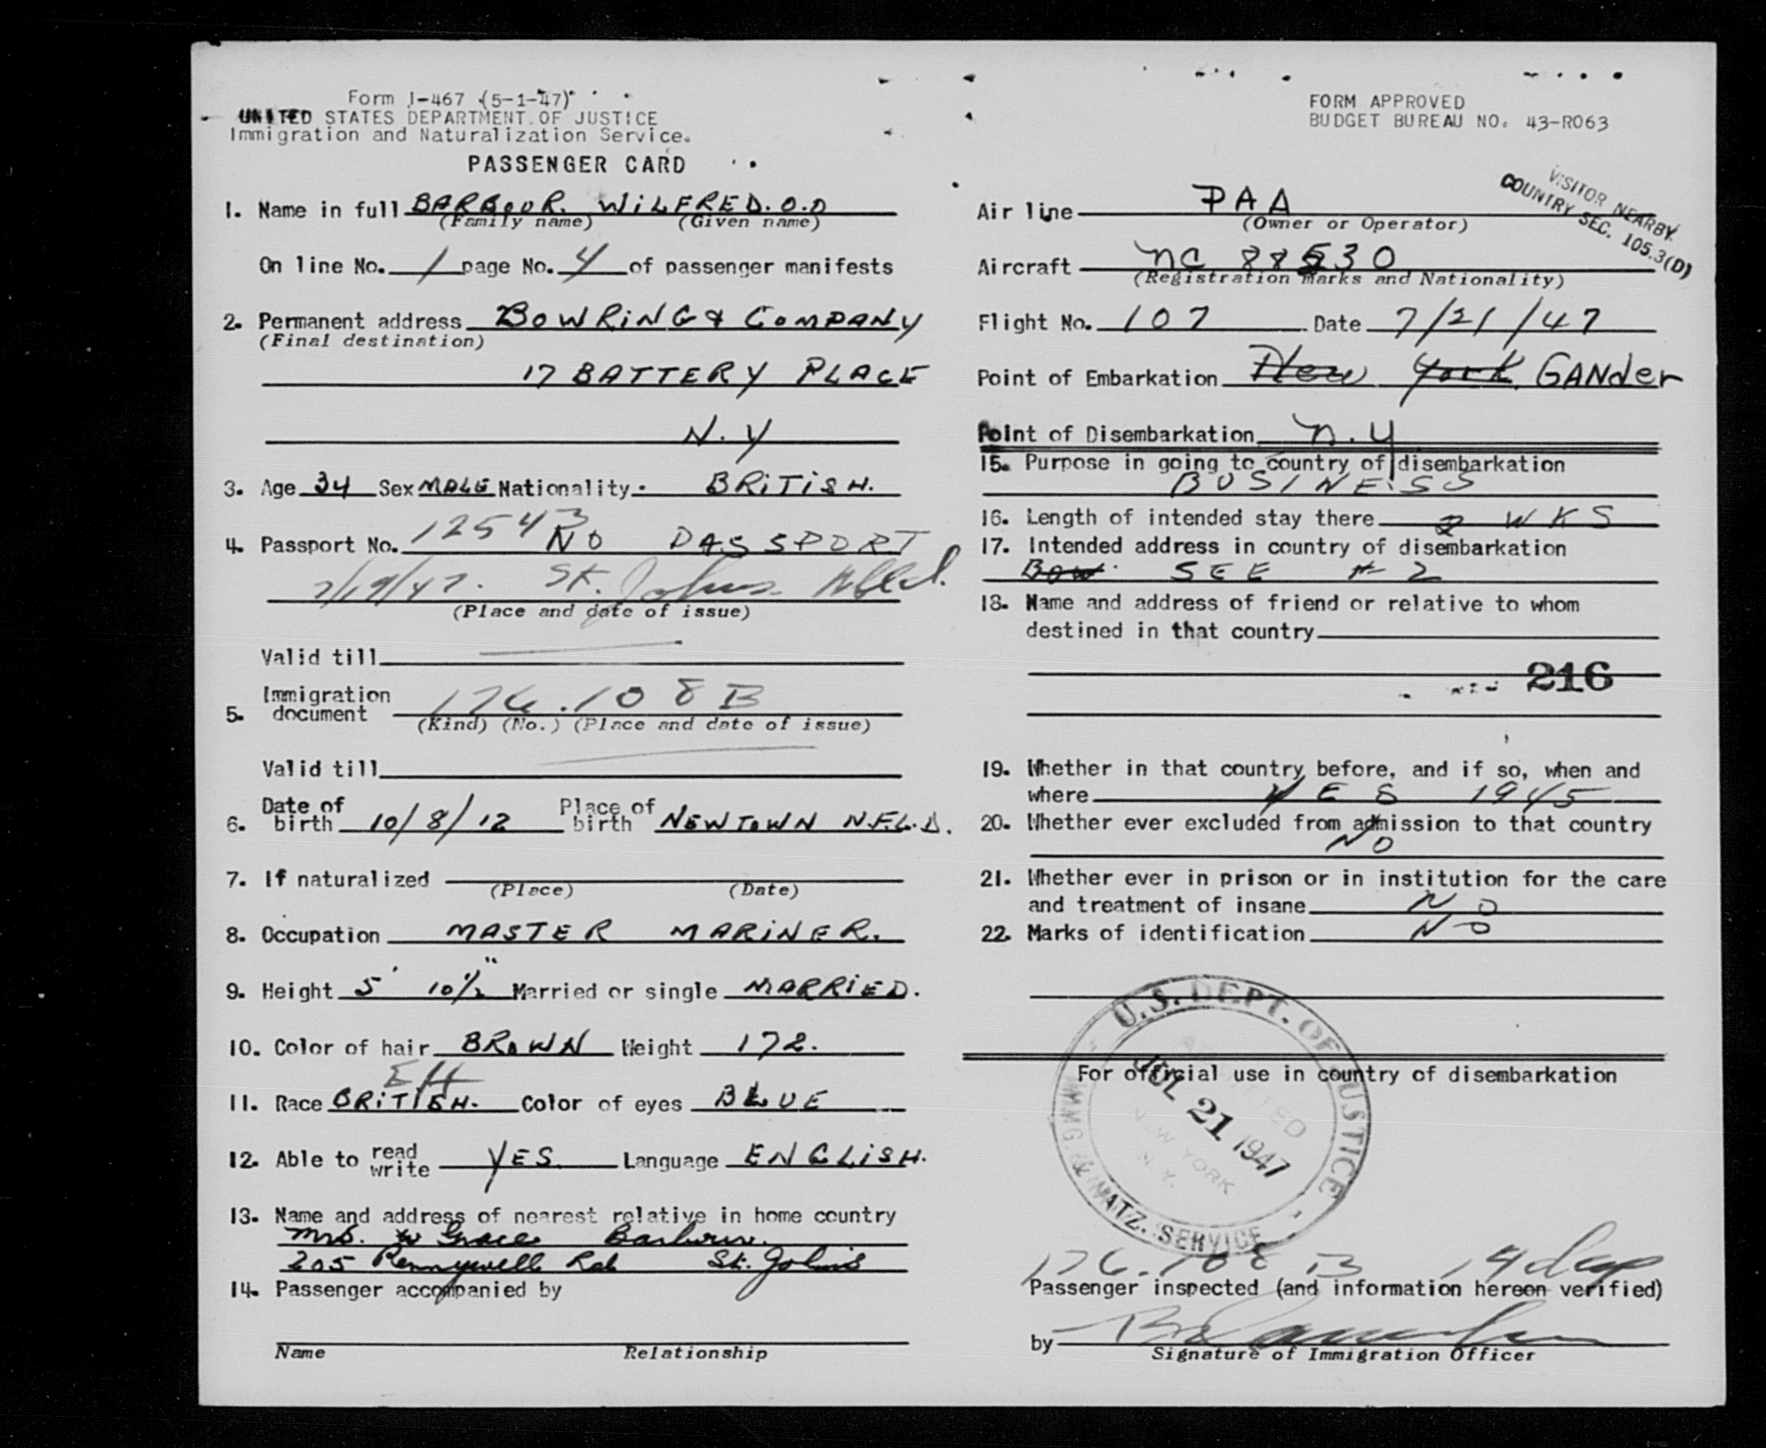 Form I-467 (5-1-47)
UNITED STATES DEPARTMENT OF JUSTICE
Immigration and Naturalization Service.
PASSENGER CARD
1. Name in full BARBOUR. WILFRED. O.D
(Family name) (Given name)
On line No. 1 page No. 4 of passenger manifests
2. Permanent address BOWRING & COMPANY
(Final destination)
17 BATTERY PLACE
N.Y
3. Age 34 Sex MALE Nationality BRITISH.
4. Passport No. 12543 NO PASSPORT
7/19/47. St. Johns Nfld.
(Place and date of issue)
Valid till
5. Immigration document 176.108B
(Kind) (No.) (Place and date of issue)
Valid till
6. Date of birth 10/8/12 Place of birth NEWTOWN N.F.L.D.
7. If naturalized
(Place) (Date)
8. Occupation MASTER MARINER.
9. Height 5' 10½" Married or single MARRIED.
10. Color of hair BROWN Weight 172.
EH
11. Race BRITISH. Color of eyes BLUE
12. Able to read write YES Language ENGLISH.
13. Name and address of nearest relative in home country
Mrs. W Grace Barbour.
205 Pennywell Rd St. John's
14. Passenger accompanied by
Name Relationship
FORM APPROVED
BUDGET BUREAU NO. 43-R063
VISITOR NEARBY
COUNTRY SEC. 105.3(D)
Air line PAA
(Owner or Operator)
Aircraft NC 88530
(Registration marks and Nationality)
Flight No. 107 Date 7/21/47
Point of Embarkation New York GANder
Point of Disembarkation N.Y
15. Purpose in going to country of disembarkation
BUSINESS
16. Length of intended stay there 2 WKS
17. Intended address in country of disembarkation
Bow SEE # 2
18. Name and address of friend or relative to whom
destined in that country
216
19. Whether in that country before, and if so, when and
where YES 1945
20. Whether ever excluded from admission to that country
NO
21. Whether ever in prison or in institution for the care
and treatment of insane NO
22. Marks of identification NO
For official use in country of disembarkation
U.S. DEPT. OF JUSTICE
ADMITTED
JUL 21 1947
NEW YORK
N.Y.
IMMIG. & NATZ. SERVICE
176.108 B 14 days
Passenger inspected (and information hereon verified)
by
Signature of Immigration Officer